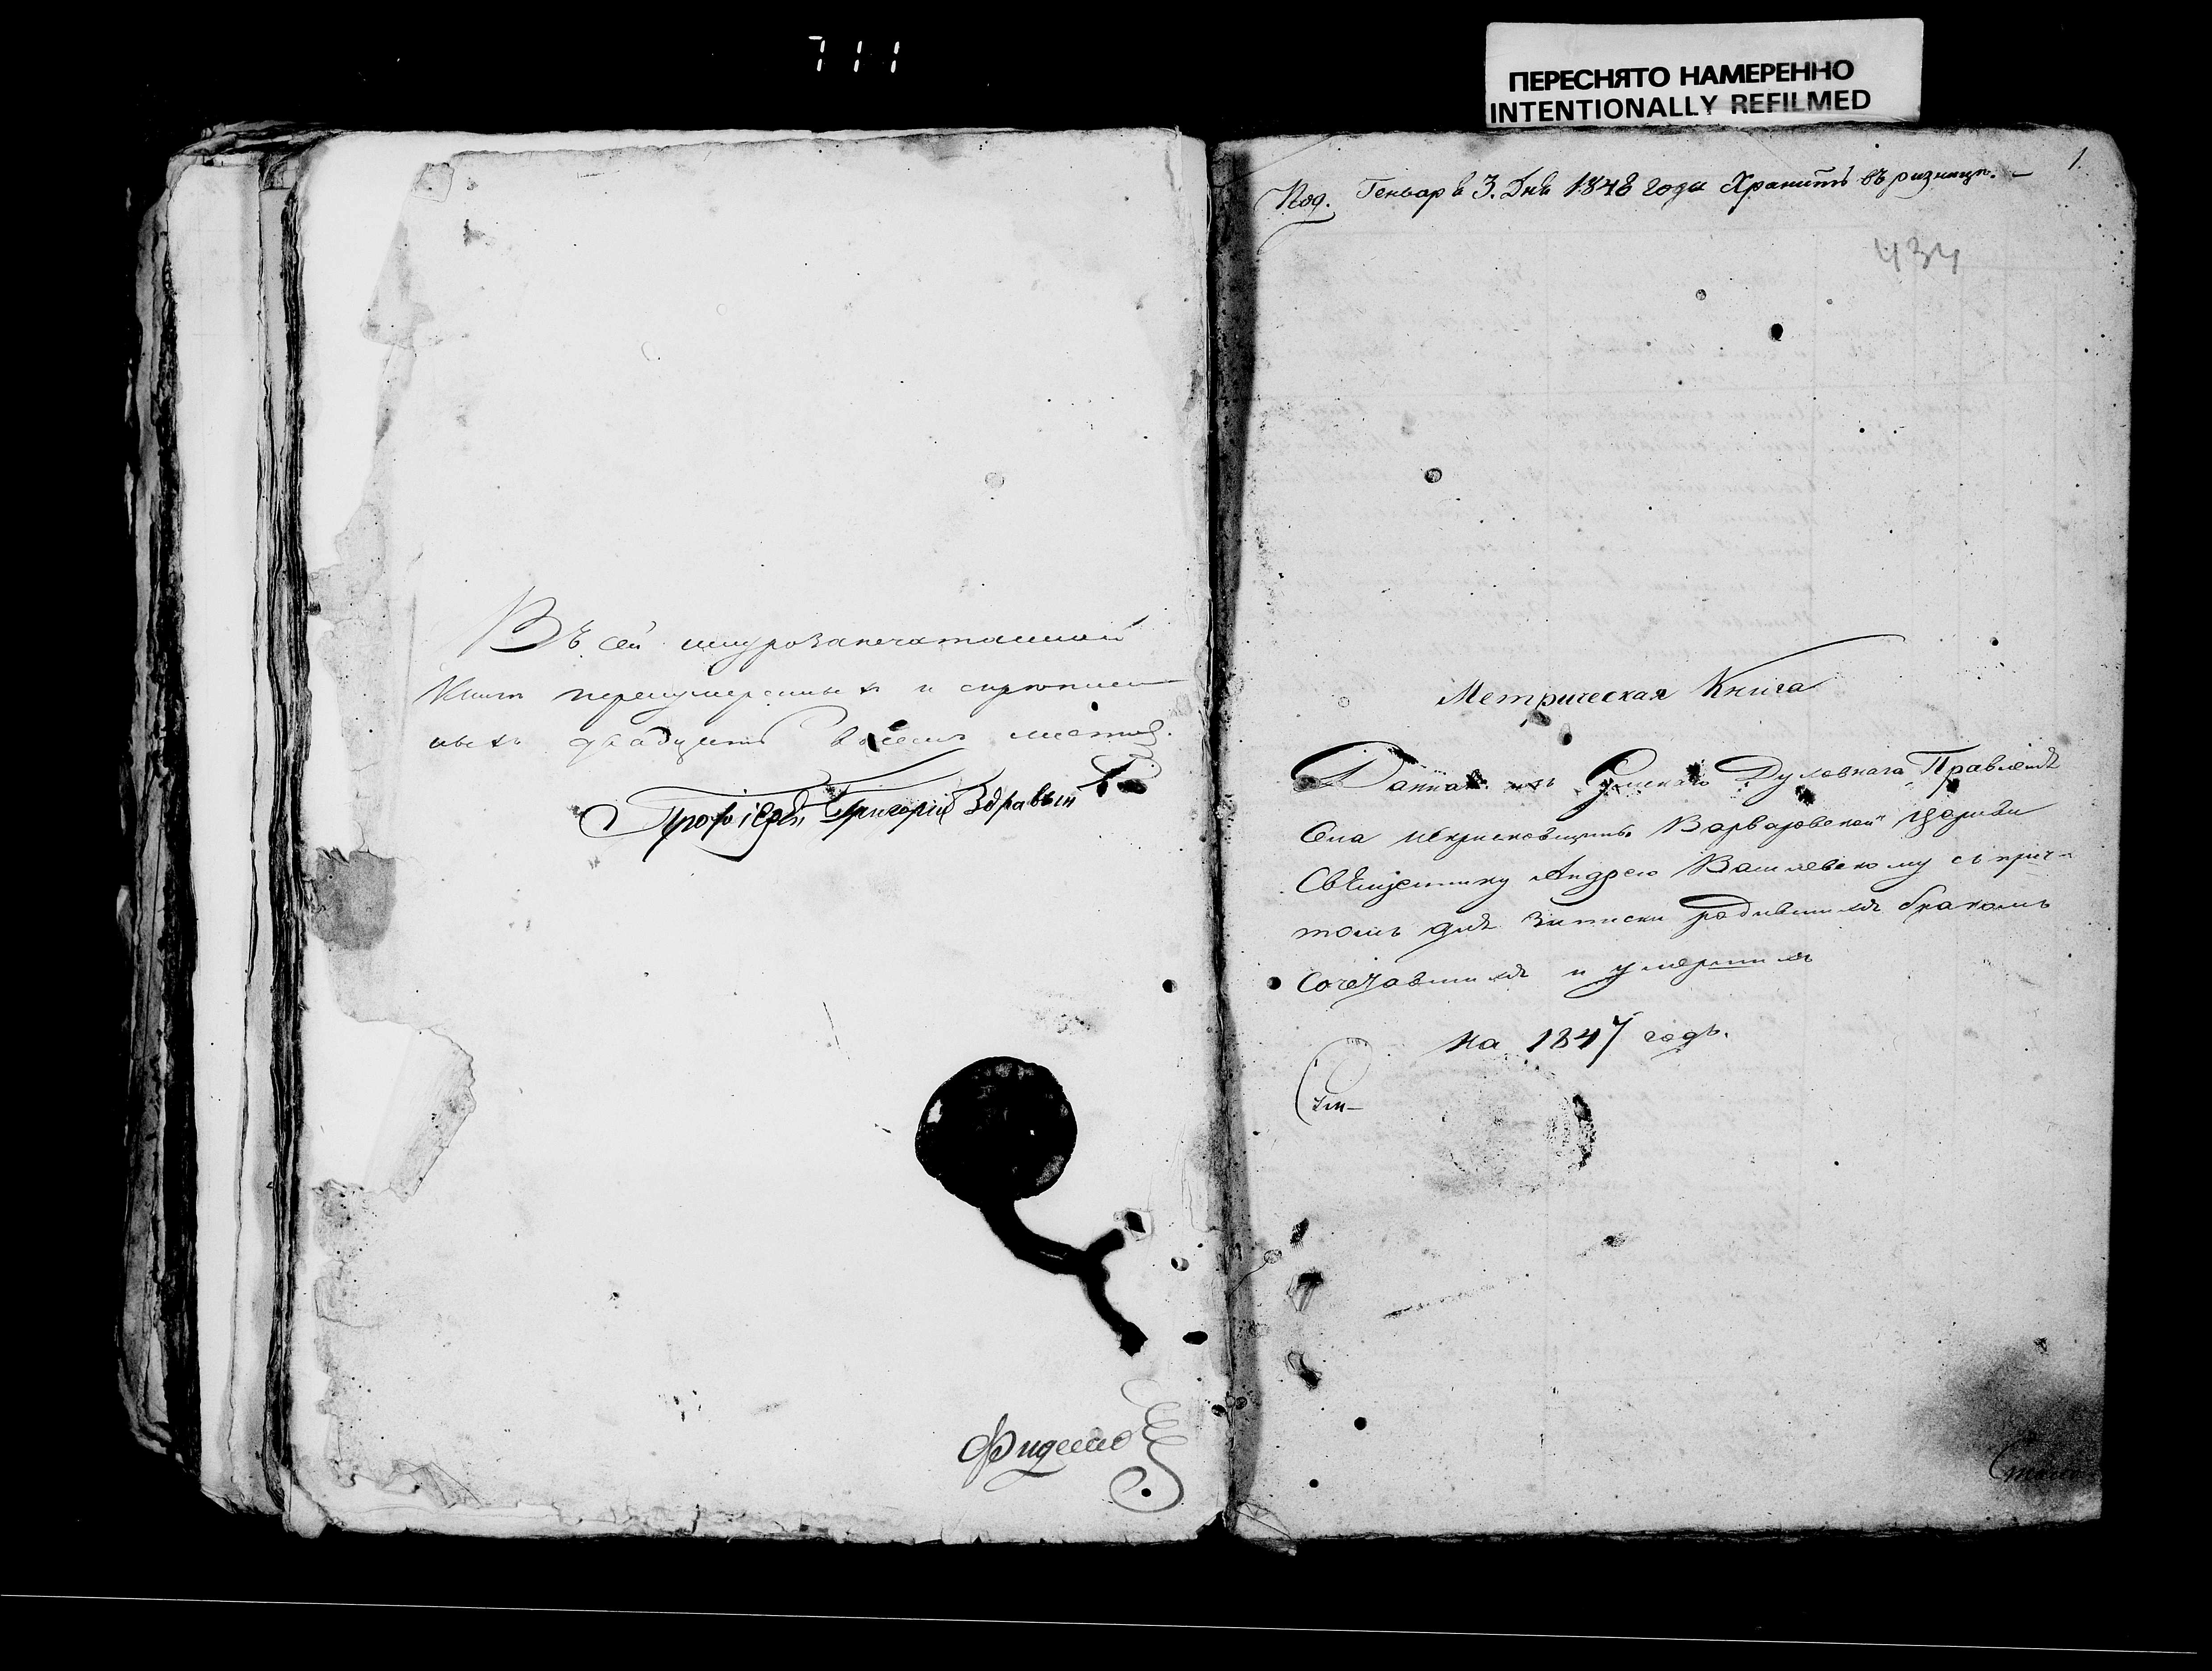 711
ПЕРЕСНЯТО НАМЕРЕННО
INTENTIONALLY REFILMED
Въ сей шнурозапечатанной
Книгѣ перенумерованныхъ и скрѣплен-
ныхъ двадцать восемь листовъ.
Протоіерей Григорій
1.
Под. Генвар 3. дня 1848 года Хранить въ ризницѣ. —
434
Метрическая Книга
Данная изъ Сумскаго Духовнаго Правленія
Села Искрисковщины Варваровской церкви
Священнику Андрею Василевскому съ прич-
томъ для записки родившихся бракомъ
сочетавшихся и умершихъ
на 1847 годъ.